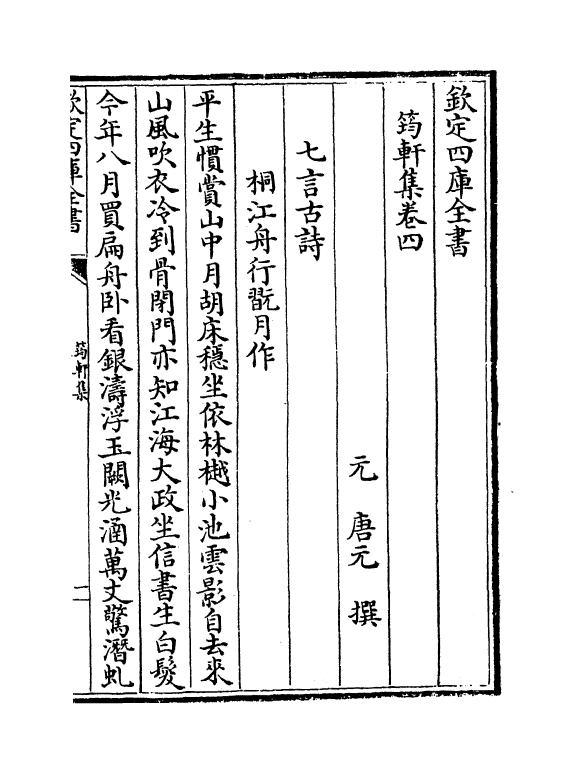 欽定四庫全書
筠軒集卷四
元　唐元　撰
七言古詩
桐江舟行翫月作
平生慣賞山中月胡床穩坐依林樾小池雲影自去來
山風吹衣冷到骨閉門亦知江海大政坐信書生白髮
今年八月買扁舟卧看銀濤浮玉闕光涵萬丈驚潛虬
欽定四庫全書
筠軒集